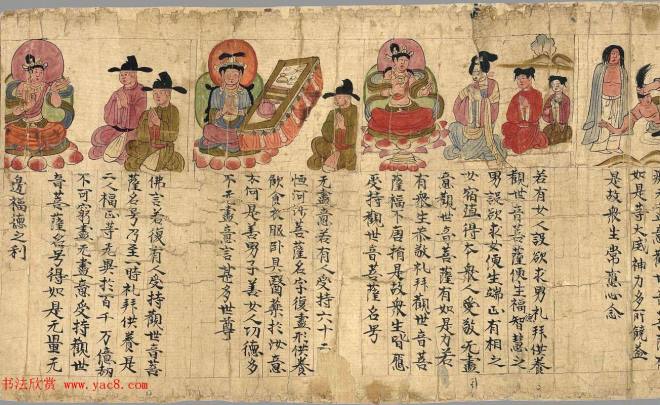 如是等大威神力多所饒益
是故衆生常應心念
若有女人設欲求男礼拜供養
觀世音菩薩便生福智慧之
男設欲求女便生端正有相之
女宿殖得本衆人愛敬无盡
意觀世音菩薩有如是力若
有衆生恭敬礼拜觀世音菩
薩福不唐捐是故衆生皆應
受持觀世音菩薩名号
无盡意若有人受持六十二
恒河沙菩薩名字復盡形供養
飲食衣服卧具醫藥於汝意
云何是善男子善女人功德多
不无盡意言甚多世尊
佛言若復有人受持觀世音菩
薩名号乃至一時礼拜供養是
二人福正等无異於百千万億劫
不可窮盡无盡意受持觀世
音菩薩名号得如是无量无
邊福德之利
书法欣赏
www.yac8.com